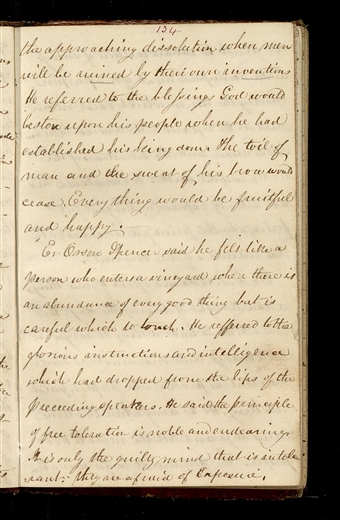 134
the approaching dissolution when men
will be ruined by their own inventions
He referred to the blessings God would
bestow upon his people when he had
established his kingdom. The toil of
man and the sweat of his brow would
cease. Every thing would be fruitful
and happy.
Er Orson Spencer said he felt like a
person who enters a vineyard where there is
an abundance of every good thing but is
careful which to touch. He reffered to the
glorious instructions and intelligence
which had dropped from the lips of the
preceeding speakers. He said the principle
of free toleration is noble and endearing
It is only the guilty mind that is intole
rant: they are afraid of Exposure.